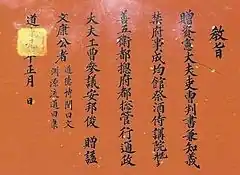 敎旨
贈資憲大夫吏曹判書兼知義
禁府事成均館祭酒侍講院贊
善五衛都摠府都摠管行通政
大夫工曹參議安邦俊 贈諡
文康公者 道德博聞曰文
淵源流通曰康
道 年正月 日